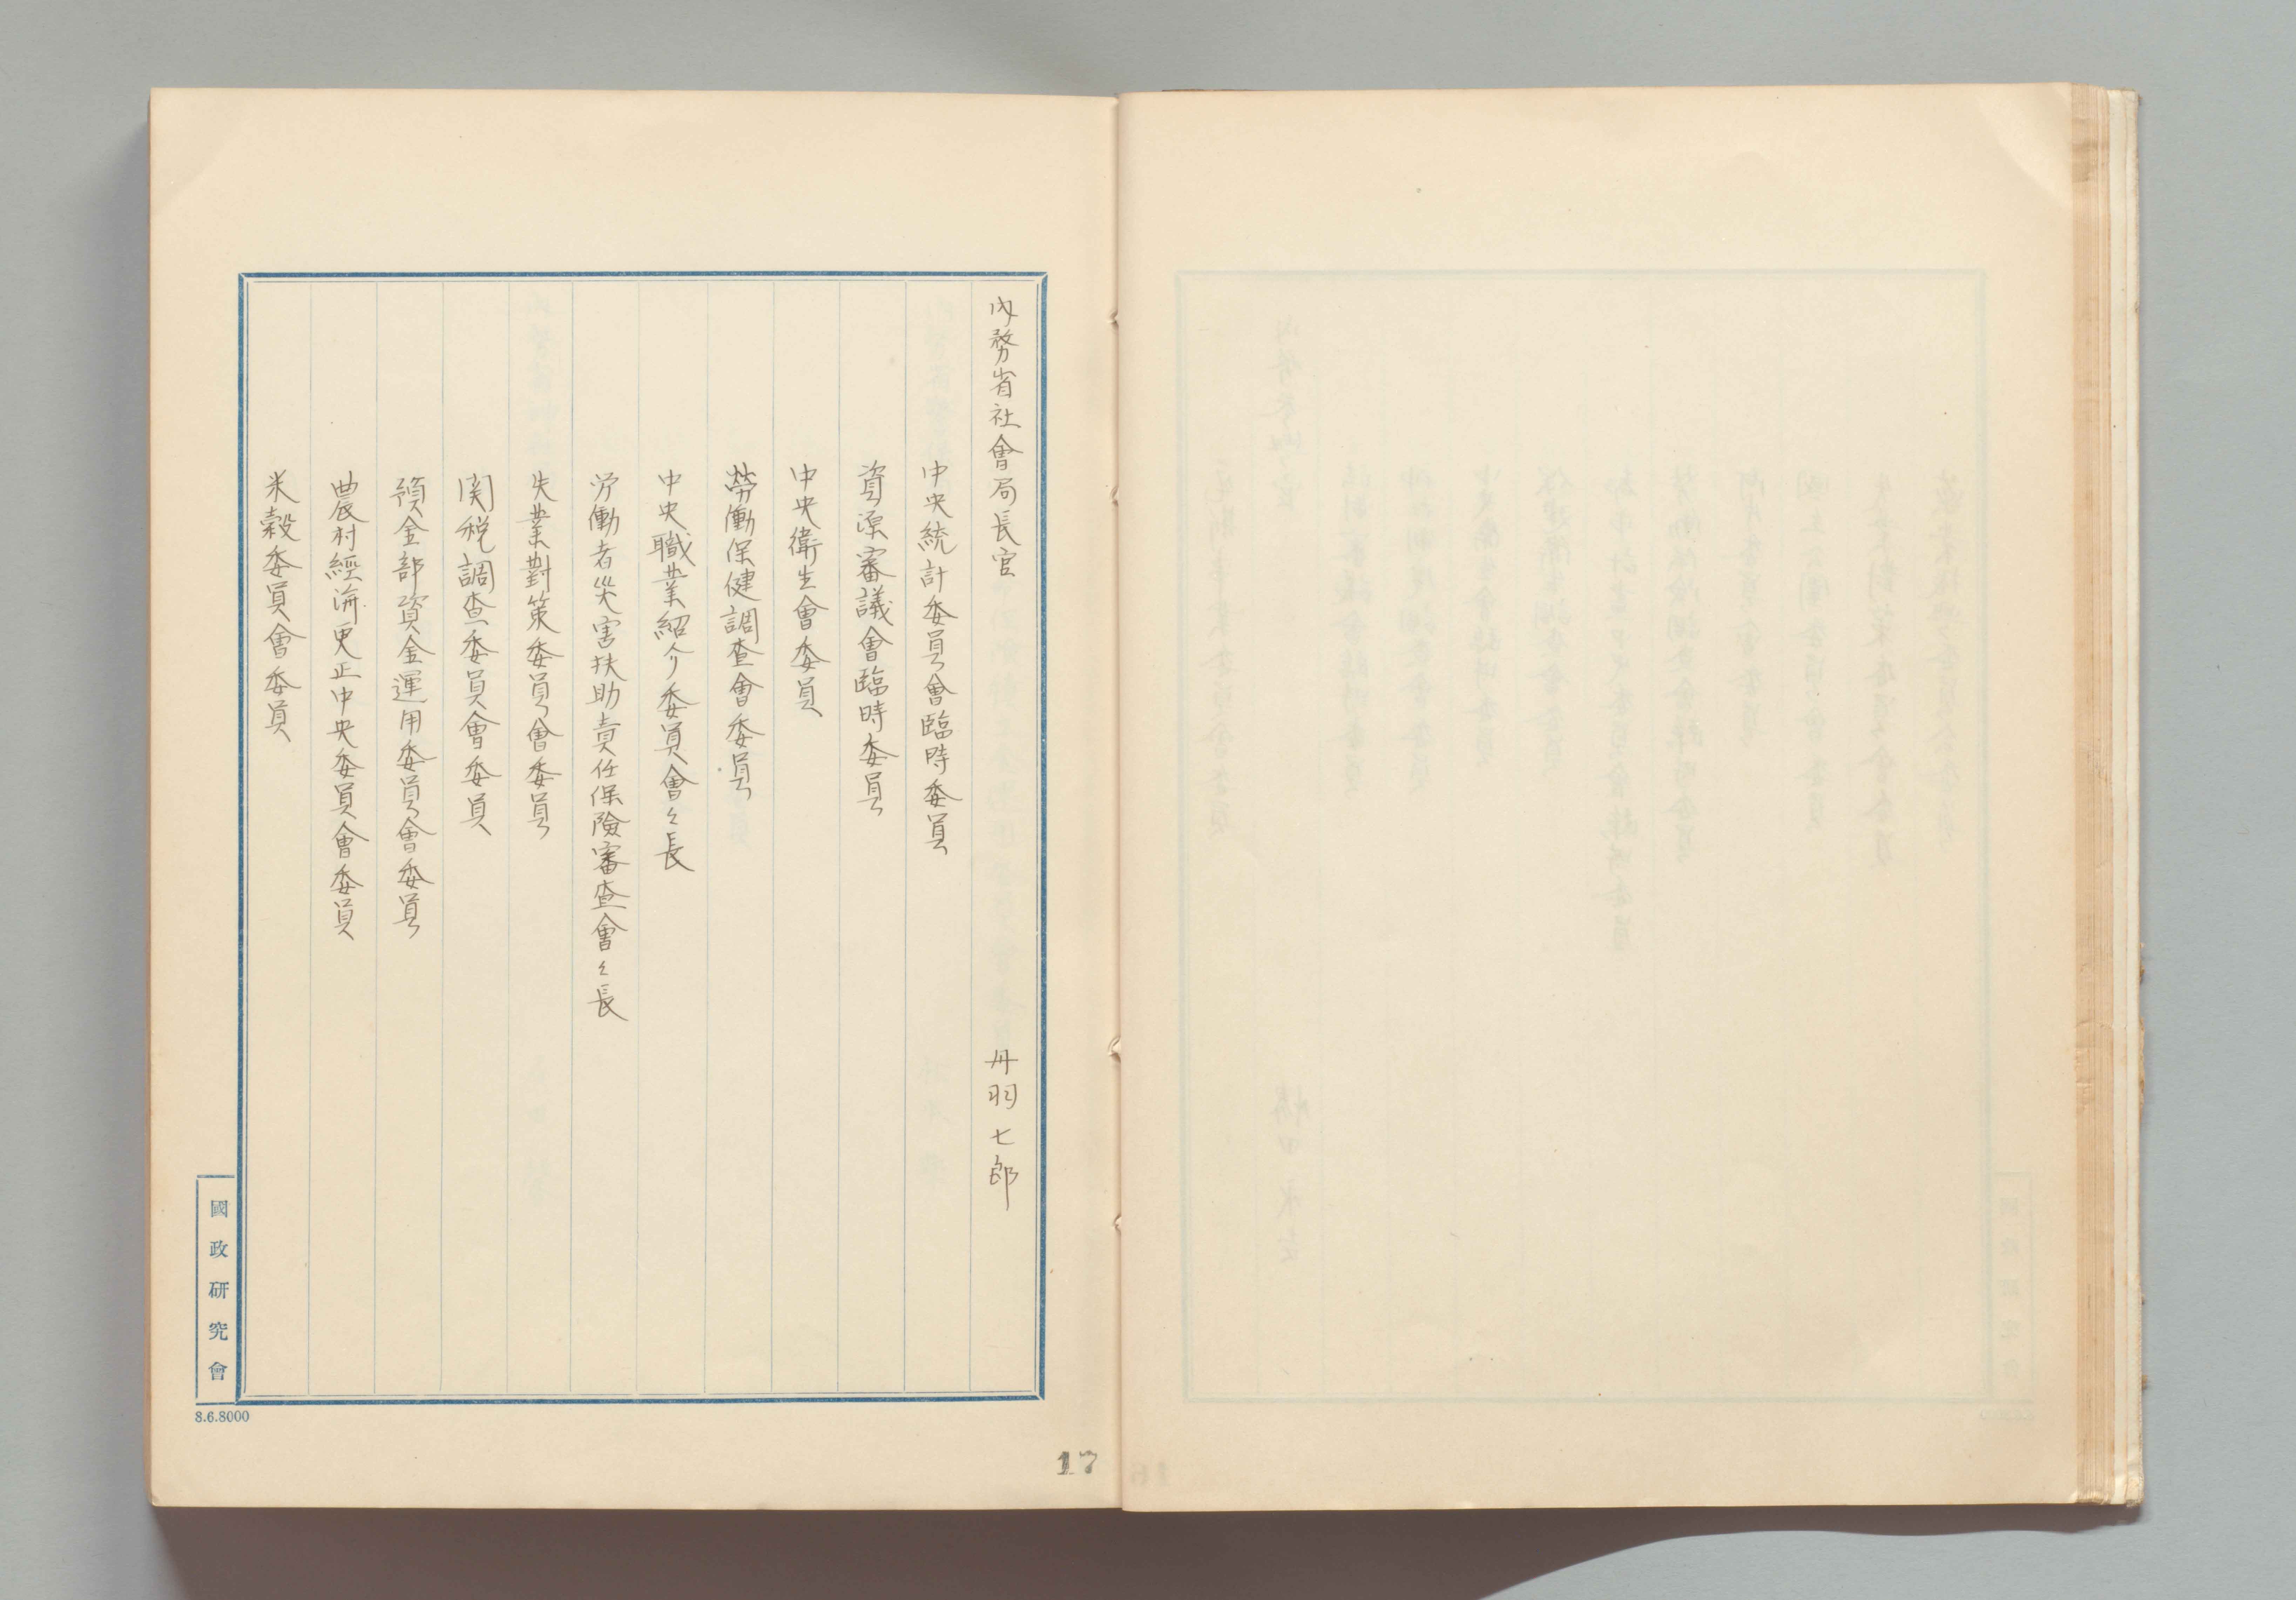 内務省社會局長官　丹羽七郎
中央統計委員會臨時委員
資源審議會臨時委員
中央衛生會委員
勞働保健調査會委員
中央職業紹介委員會々長
労働者災害扶助責任保險審査會々長
失業對策委員會委員
関税調査委員會委員
預金部資金運用委員會委員
農村經済更正中央委員會委員
米穀委員會委員
國政研究會
8.6.8000
17